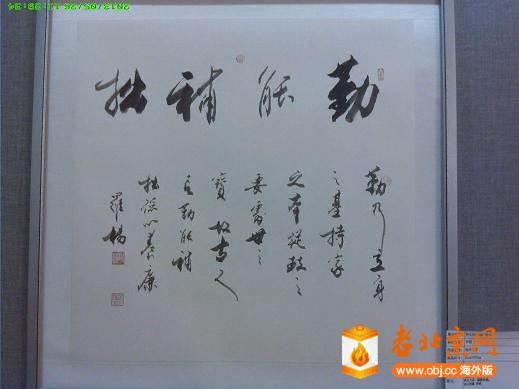 勤能補拙
勤乃立身
之基持家
之本從政之
要處世之
寶故古人
云勤能補
拙儉以養廉
羅楊
老北京网
www.obj.cc 海外版